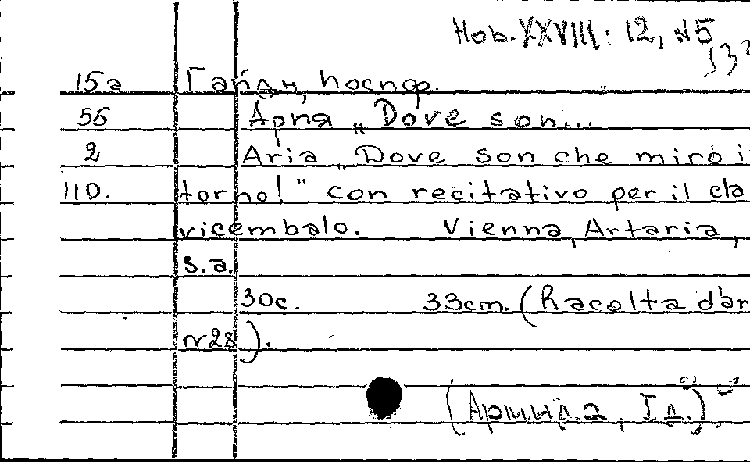 Hob. XXVIII: 12, №5
15а Гайдн, Йосиф.
5б Ария „Dove son...
2 Aria „Dove son che miro i
110. torno!" con recitativo per il cla
vicembalo. Vienna, Artaria,
s.a.
30с. 33cm. (Racolta d'ar
№28).
(Армида, I д.)